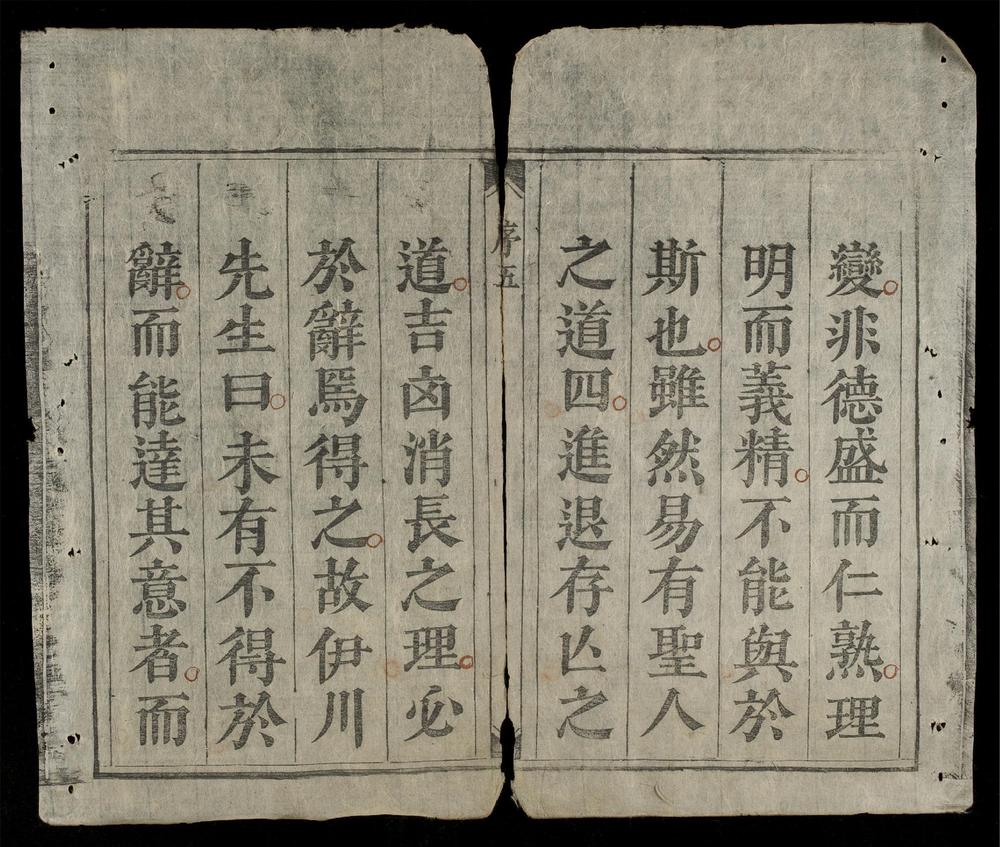 變非德盛而仁熟理
明而義精不能與於
斯也雖然易有聖人
之道四進退存亾之
序五
道吉凶消長之理必
於辭焉得之故伊川
先生曰未有不得於
辭而能達其意者而